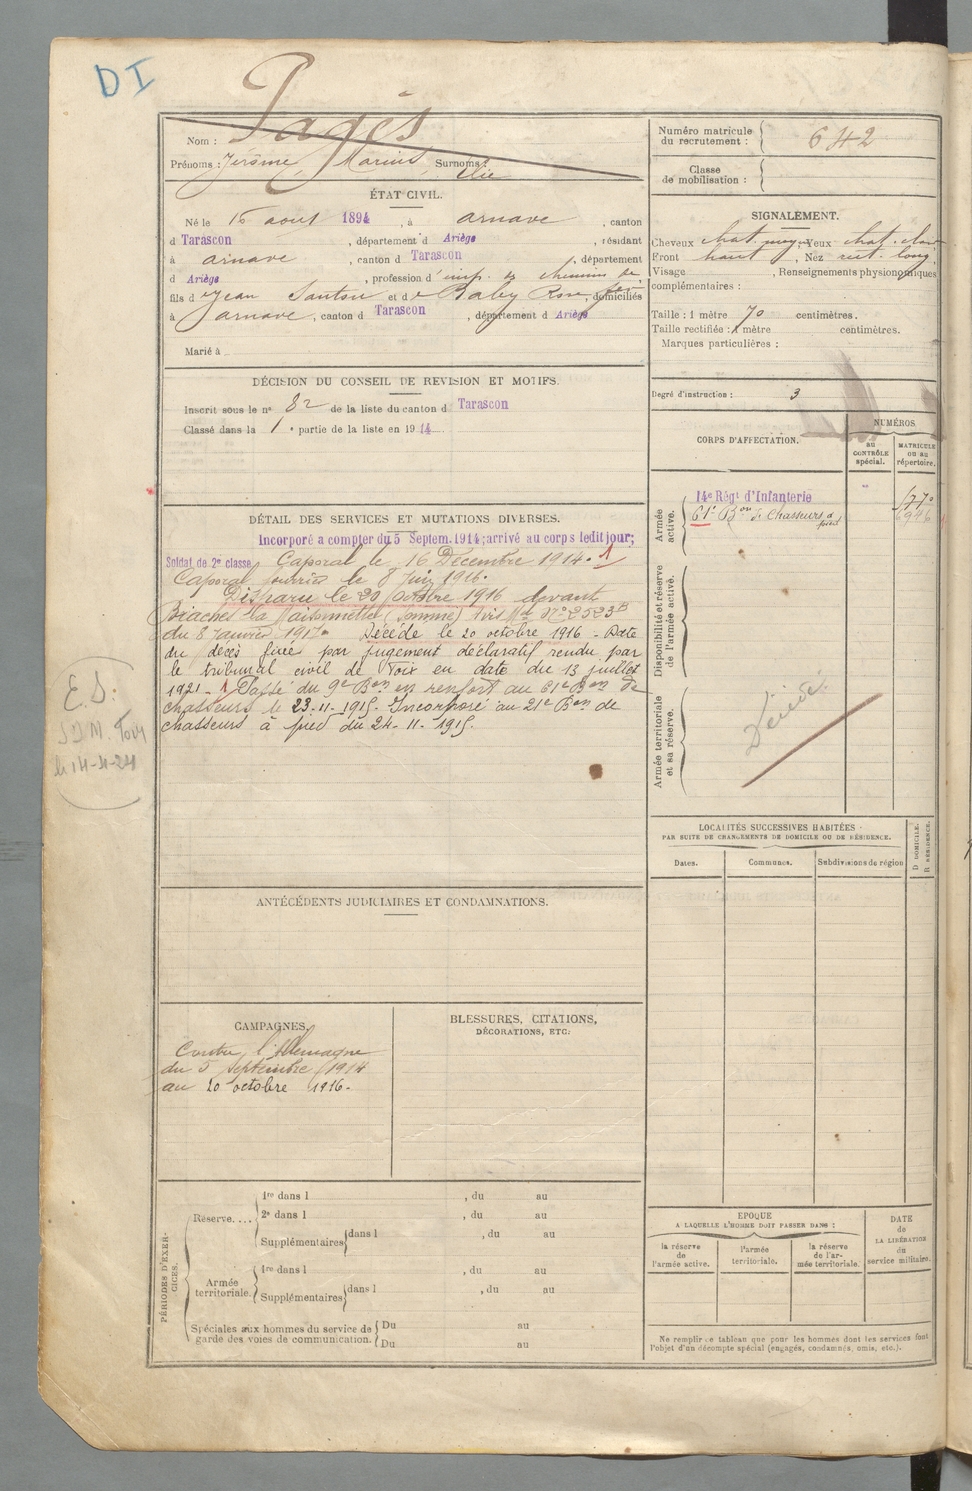 DI
Pagès
Nom :
Prénoms : Jérôme, Marius, Surnoms : Elie
ÉTAT CIVIL.
Né le 16 aout 1894, à arnave, canton
d Tarascon, département d Ariège, résidant
à arnave, canton d Tarascon, département
d Ariège, profession d' emp. chemins de fer
fils d e Jean Santou et d e Baby Rose, domiciliés
à arnave, canton d Tarascon, département d Ariège
Marié à
DÉCISION DU CONSEIL DE REVISION ET MOTIFS.
Inscrit sous le n° 82 de la liste du canton d Tarascon
Classé dans la 1e partie de la liste en 1914
DÉTAIL DES SERVICES ET MUTATIONS DIVERSES.
Incorporé a compter du 5 Septem. 1914; arrivé au corps ledit jour;
Soldat de 2e classe. Caporal le 16 Décembre 1914. 1
Caporal fourrier le 8 Juin 1916.
Disparu le 20 octobre 1916 devant
Biaches La Maisonnette (Somme) avis Mel N° 2523 B
du 8 Janvier 1917. Décédé le 20 octobre 1916 - Date
du décès fixée par jugement déclaratif rendu par
le tribunal civil de Foix en date du 13 juillet
1921 - 1 Passé du 9e Bon en renfort au 61e Bon de
chasseurs le 23-11-1915. Incorporé au 21e Bon de
chasseurs à pied du 24-11-1915.
E.S.
S.I.M. Foix
le 14-4-24
ANTÉCÉDENTS JUDICIAIRES ET CONDAMNATIONS.
CAMPAGNES.
Contre l'Allemagne
du 5 septembre 1914
au 20 octobre 1916-
BLESSURES, CITATIONS,
DÉCORATIONS, ETC.
PÉRIODES D'EXERCICES.
Réserve....
1re dans l , du au
2e dans l , du au
Supplémentaires dans l , du au
Armée territoriale.
1re dans l , du au
Supplémentaires dans l , du au
Spéciales aux hommes du service de
garde des voies de communication.
Du au
Du au
Numéro matricule
du recrutement : 642
Classe
de mobilisation :
SIGNALEMENT.
Cheveux chat. moy. Yeux chat. clair
Front haut, Nez rect. long.
Visage , Renseignements physionomiques
complémentaires :
Taille : 1 mètre 70 centimètres.
Taille rectifiée : 1 mètre centimètres.
Marques particulières :
Degré d'instruction : 3
CORPS D'AFFECTATION.
NUMÉROS
au
CONTRÔLE
spécial.
MATRICULE
ou au
répertoire.
Armée
active.
14e Régt d'Infanterie
61e Bon de Chasseurs à pied 6946
Disponibilité et réserve
de l'armée active.
Armée territoriale
et sa réserve.
Décédé
LOCALITÉS SUCCESSIVES HABITÉES
PAR SUITE DE CHANGEMENTS DE DOMICILE OU DE RÉSIDENCE.
Dates.
Communes.
Subdivisions de région
D DOMICILE.
R RÉSIDENCE.
ÉPOQUE
A LAQUELLE L'HOMME DOIT PASSER DANS :
la réserve
de
l'armée active.
l'armée
territoriale.
la réserve
de l'ar-
mée territoriale.
DATE
de
LA LIBÉRATION
du
service militaire.
Ne remplir ce tableau que pour les hommes dont les services font
l'objet d'un décompte spécial (engagés, condamnés, omis, etc.).